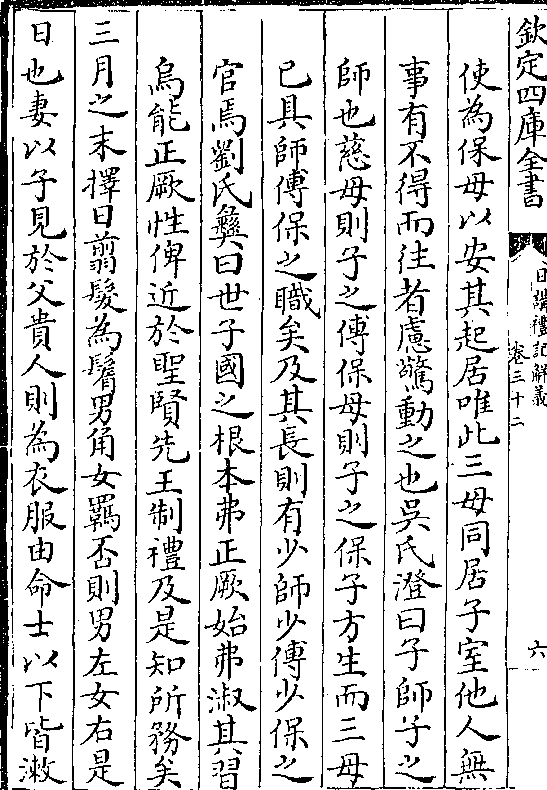 欽定四庫全書
日講禮記解義
卷三十二
六
使為保母以安其起居唯此三母同居子室他人無
事有不得而往者慮驚動之也吳氏澄曰子師子之
師也慈母則子之傅保母則子之保子方生而三母
已具師傅保之職矣及其長則有少師少傅少保之
官焉劉氏彝曰世子國之根本弗正厥始弗淑其習
烏能正厥性俾近於聖賢先王制禮及是知所務矣
三月之末擇日翦髮為鬌男角女羈否則男左女右是
日也妻以子見於父貴人則為衣服由命士以下皆漱